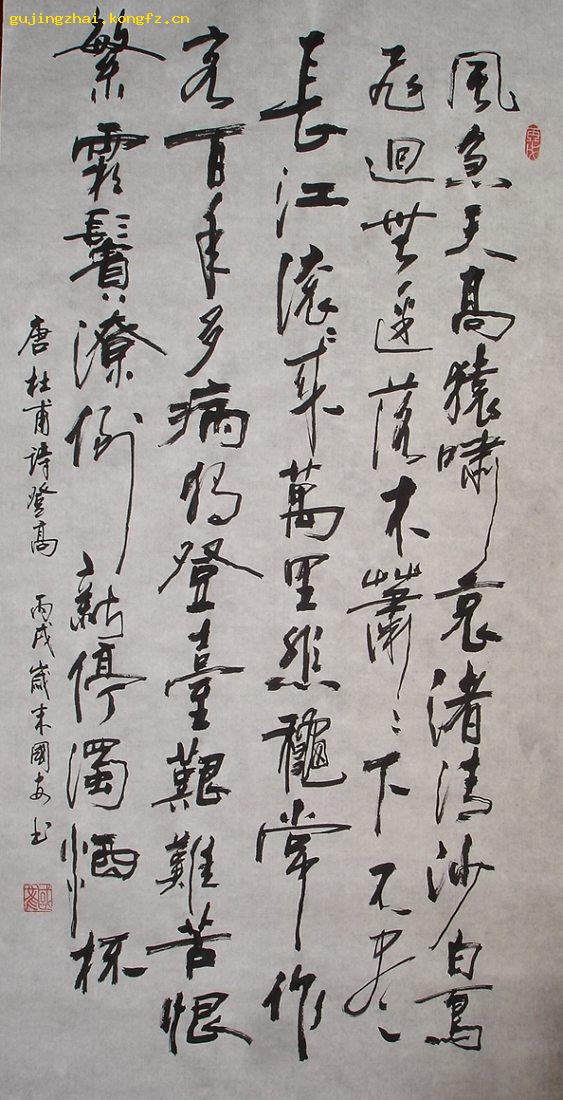 gujingzhai.kongfz.cn
風急天高猿嘯哀渚清沙白鳥
飛迴無邊落木蕭々下不盡
長江滾々來萬里悲龝常作
客百年多病獨登臺艱難苦恨
繁霜鬢潦倒新停濁酒杯
唐杜甫詩登高 丙戌歲末國安书